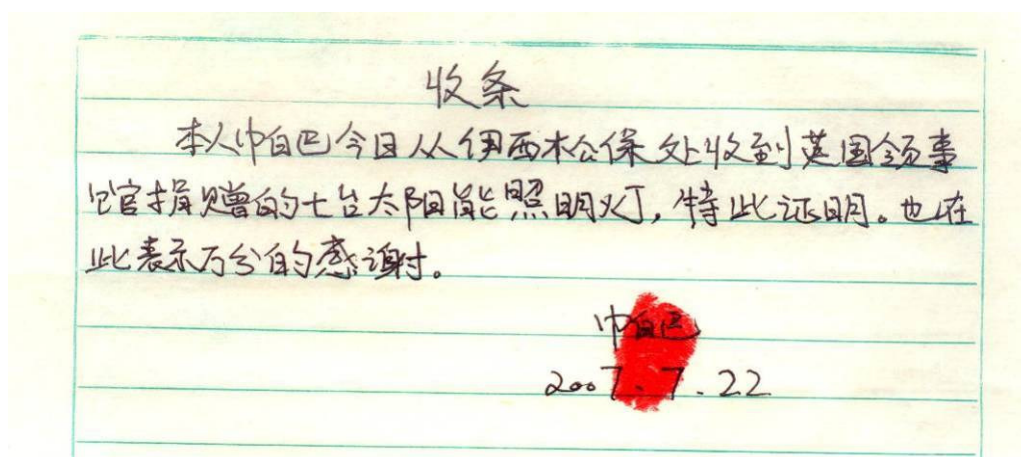 收条
本人帕巴今日从伊西松保处收到英国领事
馆捐赠的七台太阳能照明灯，特此证明。也在
此表示万分的感谢。
帕巴
2007.7.22